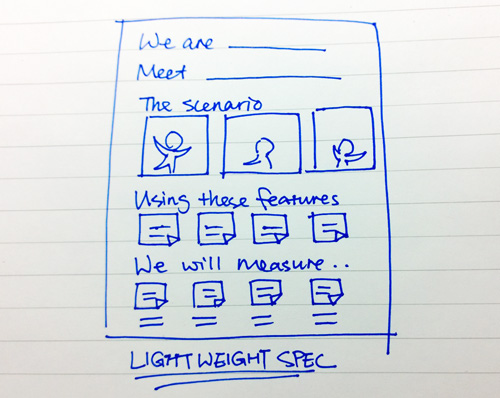 We are
Meet
The scenario
Using these features
We will measure..
LIGHTWEIGHT SPEC